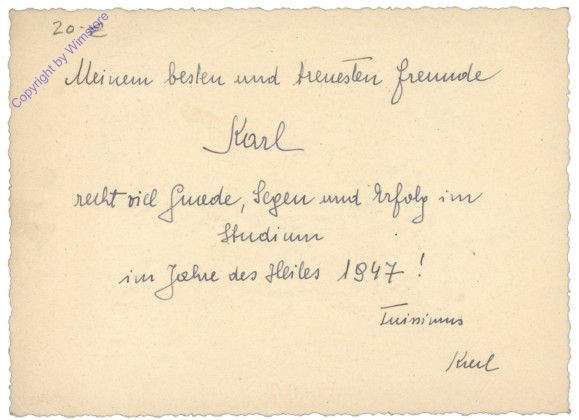 20.-
Copyright by Wimstore
Meinem besten und treuesten Freunde
Karl
recht viel Gnade, Segen und Erfolg im
Studium
im Jahre des Heiles 1947!
Tuissimus
Karl